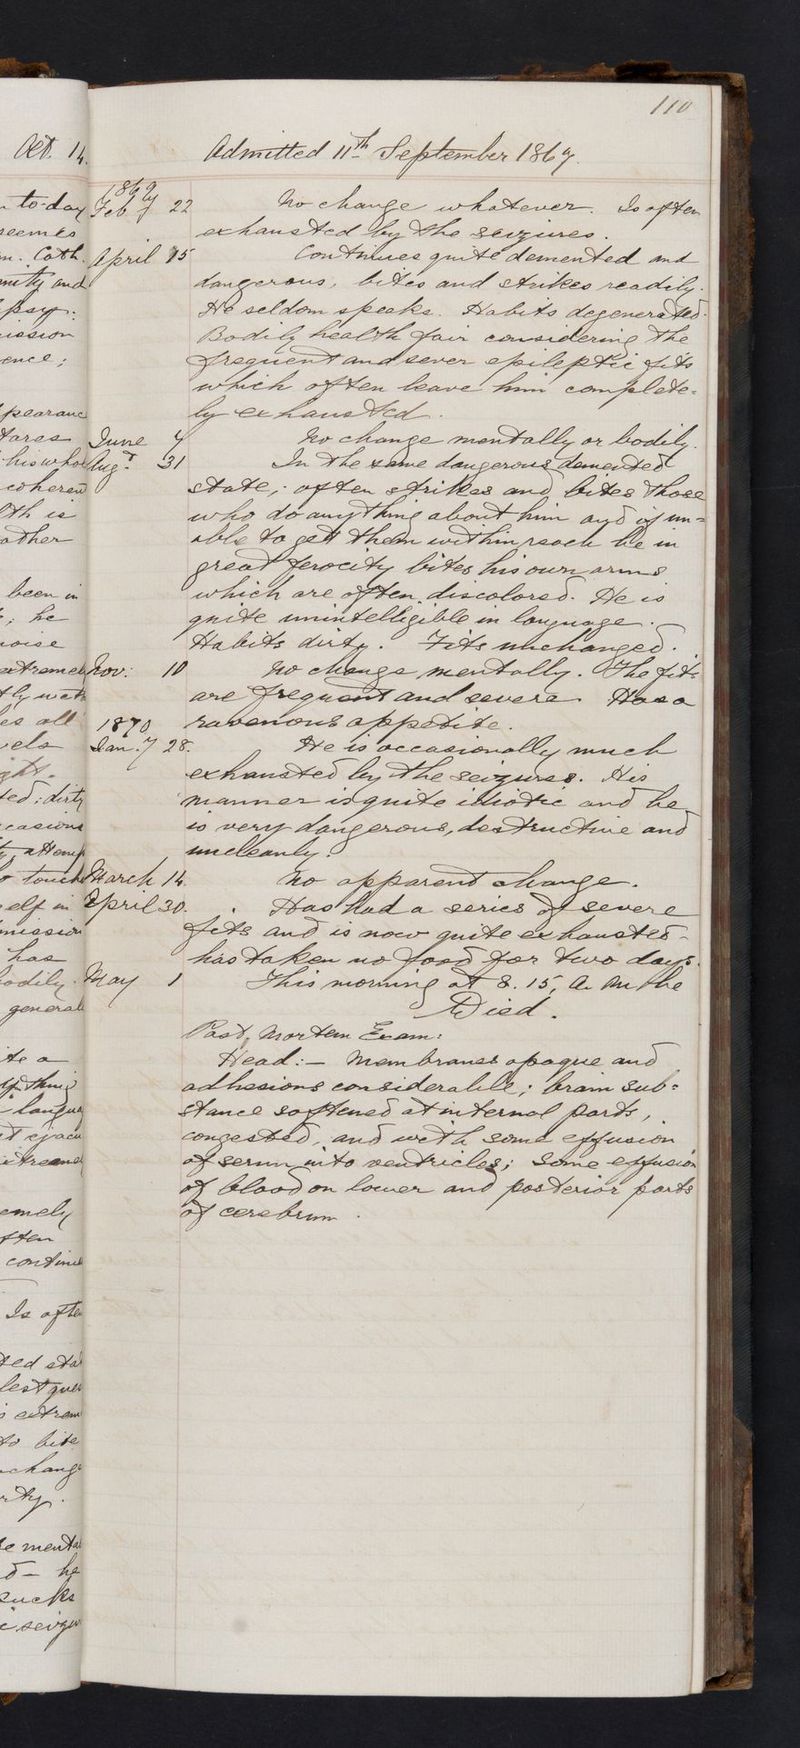 110
Aet. 14.
Admitted 11th September 1867.
1869
Feby 22 No change whatever. Is often
exhausted by the seizures.
April 15 Continues quite demented and
dangerous, bites and strikes readily.
He seldom speaks. Habits degenerated.
Bodily health fair considering the
frequent and sever epileptic fits
which often leave him complete-
ly exhausted.
June 4 No change mentally or bodily.
Augt 31 In the same dangerous demented
state; often strikes and bites those
who do anything about him and if un-
able to get them within reach he in
great ferocity bites his own arms
which are often discolored. He is
quite unintelligible in language.
Habits dirty. Fits unchanged.
Nov: 10 No change mentally. The fits
are frequent and severe. Has a
ravenous appetite.
1870
Jany 28. He is occasionally much
exhausted by the seizures. His
manner is quite idiotic and he
is very dangerous, destructive and
uncleanly.
March 14. No apparent change.
April 30. Has had a series of severe
fits and is now quite exhausted-
has taken no food for two days.
May 1 This morning at 8.15, A. M he
Died.
Post Mortem Exam:
Head:- Membranes opaque and
adhesions considerable; brain sub-
stance softened at internal parts,
congested, and with some effusion
of serum into ventricles; some effusion
of blood on lower and posterior parts
of cerebrum.
to-day
seems
Cath.
and
ence;
pearance
his whol
other
been in
; he
noise
all
dirty
touch
elf in
has
bodily.
general
to a
continu
Is often
to bite
he
sucks